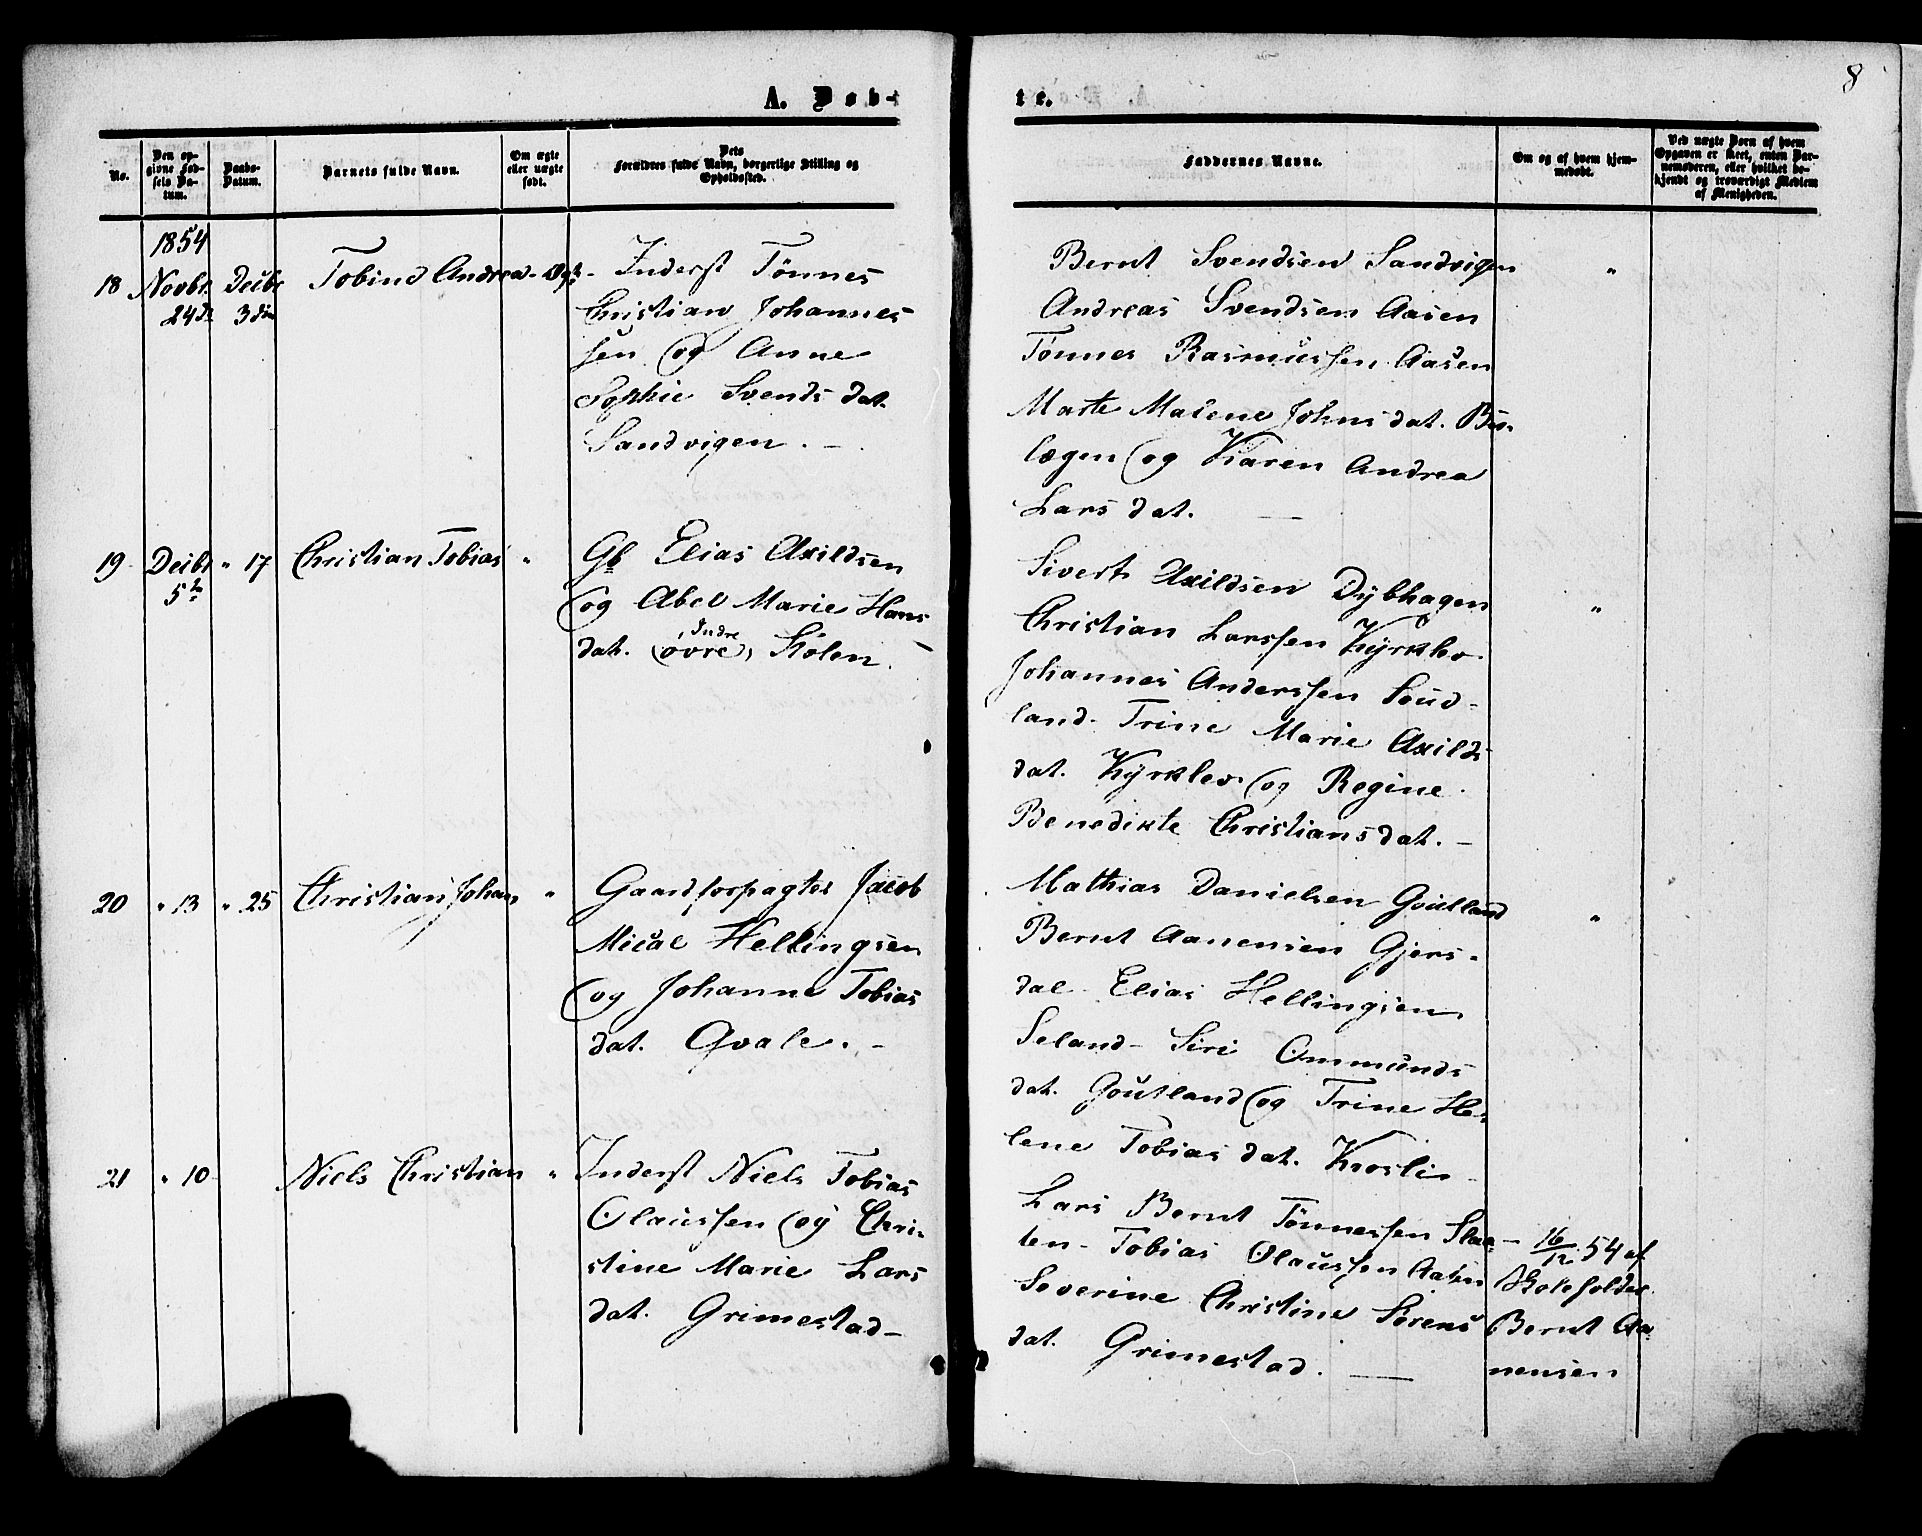 8
A. Døb-
te.
No.
Den op-
givne Fød-
sels Da-
tum.
Daabs-
Datum.
Barnets fulde Navn.
Om ægte
eller uægte
født.
Dets
Forældres fulde Navn, borgerlige Stilling og
Opholdssted.
Faddernes Navne.
Om og af hvem hjem-
medøbt.
Ved uægte Børn af hvem
Opgaven er skeet, enten Bar-
nemoderen, eller hvilket be-
kjendt og troværdigt Medlem
af Menigheden.
1854
18 Novbr Decbr Tobine Andrea - Ægt -
24de 3die
Inderst Tönnes
Christian Johannes
sen og Anne
Sophie Svends dat.
Sandvigen. -
Bernt Svendsen Sandvigen "
Andreas Svendsen Aasen
Tönnes Rasmussen Aasen
Marte Malene Johns dat.
lægen og Karen Andrea
Lars dat. -
19 Decbr " 17 Christian Tobias "
5te
Gb Elias Axildsen
og Abel Marie Hans
dat. (Indre
øvre) Stölen. -
Sivert Axildsen Dybhagen "
Christian Larssen Kyrklev.
Johannes Anderssen Soud-
land - Trine Marie Axilds
dat. Kyrklev. og Regine
Benedikte Christians dat. -
20 " 13 " 25 Christian Johan "
Gaardforpagter Jacob
Micael Hellingsen
og Johanne Tobias
dat. Qvale. -
Mathias Danielsen Goutland "
Bernt Aanensen Gjers-
dal - Elias Hellingsen
Seland - Siri Ommunds
dat. Goutland og Trine He-
lene Tobias dat. Kvosli -
21 " 10 - Niels Christian "
Inderst Niels Tobias
Olaussen og Chri-
stine Marie Lars
dat. Grimestad -
Lars Bernt Tönnessen Slaa-
ten - Tobias Olaussen Aasen
Severine Christine Sörens
dat. Grimestad. -
16/12 54 af
Skoleholder
Bernt Aa-
nensen